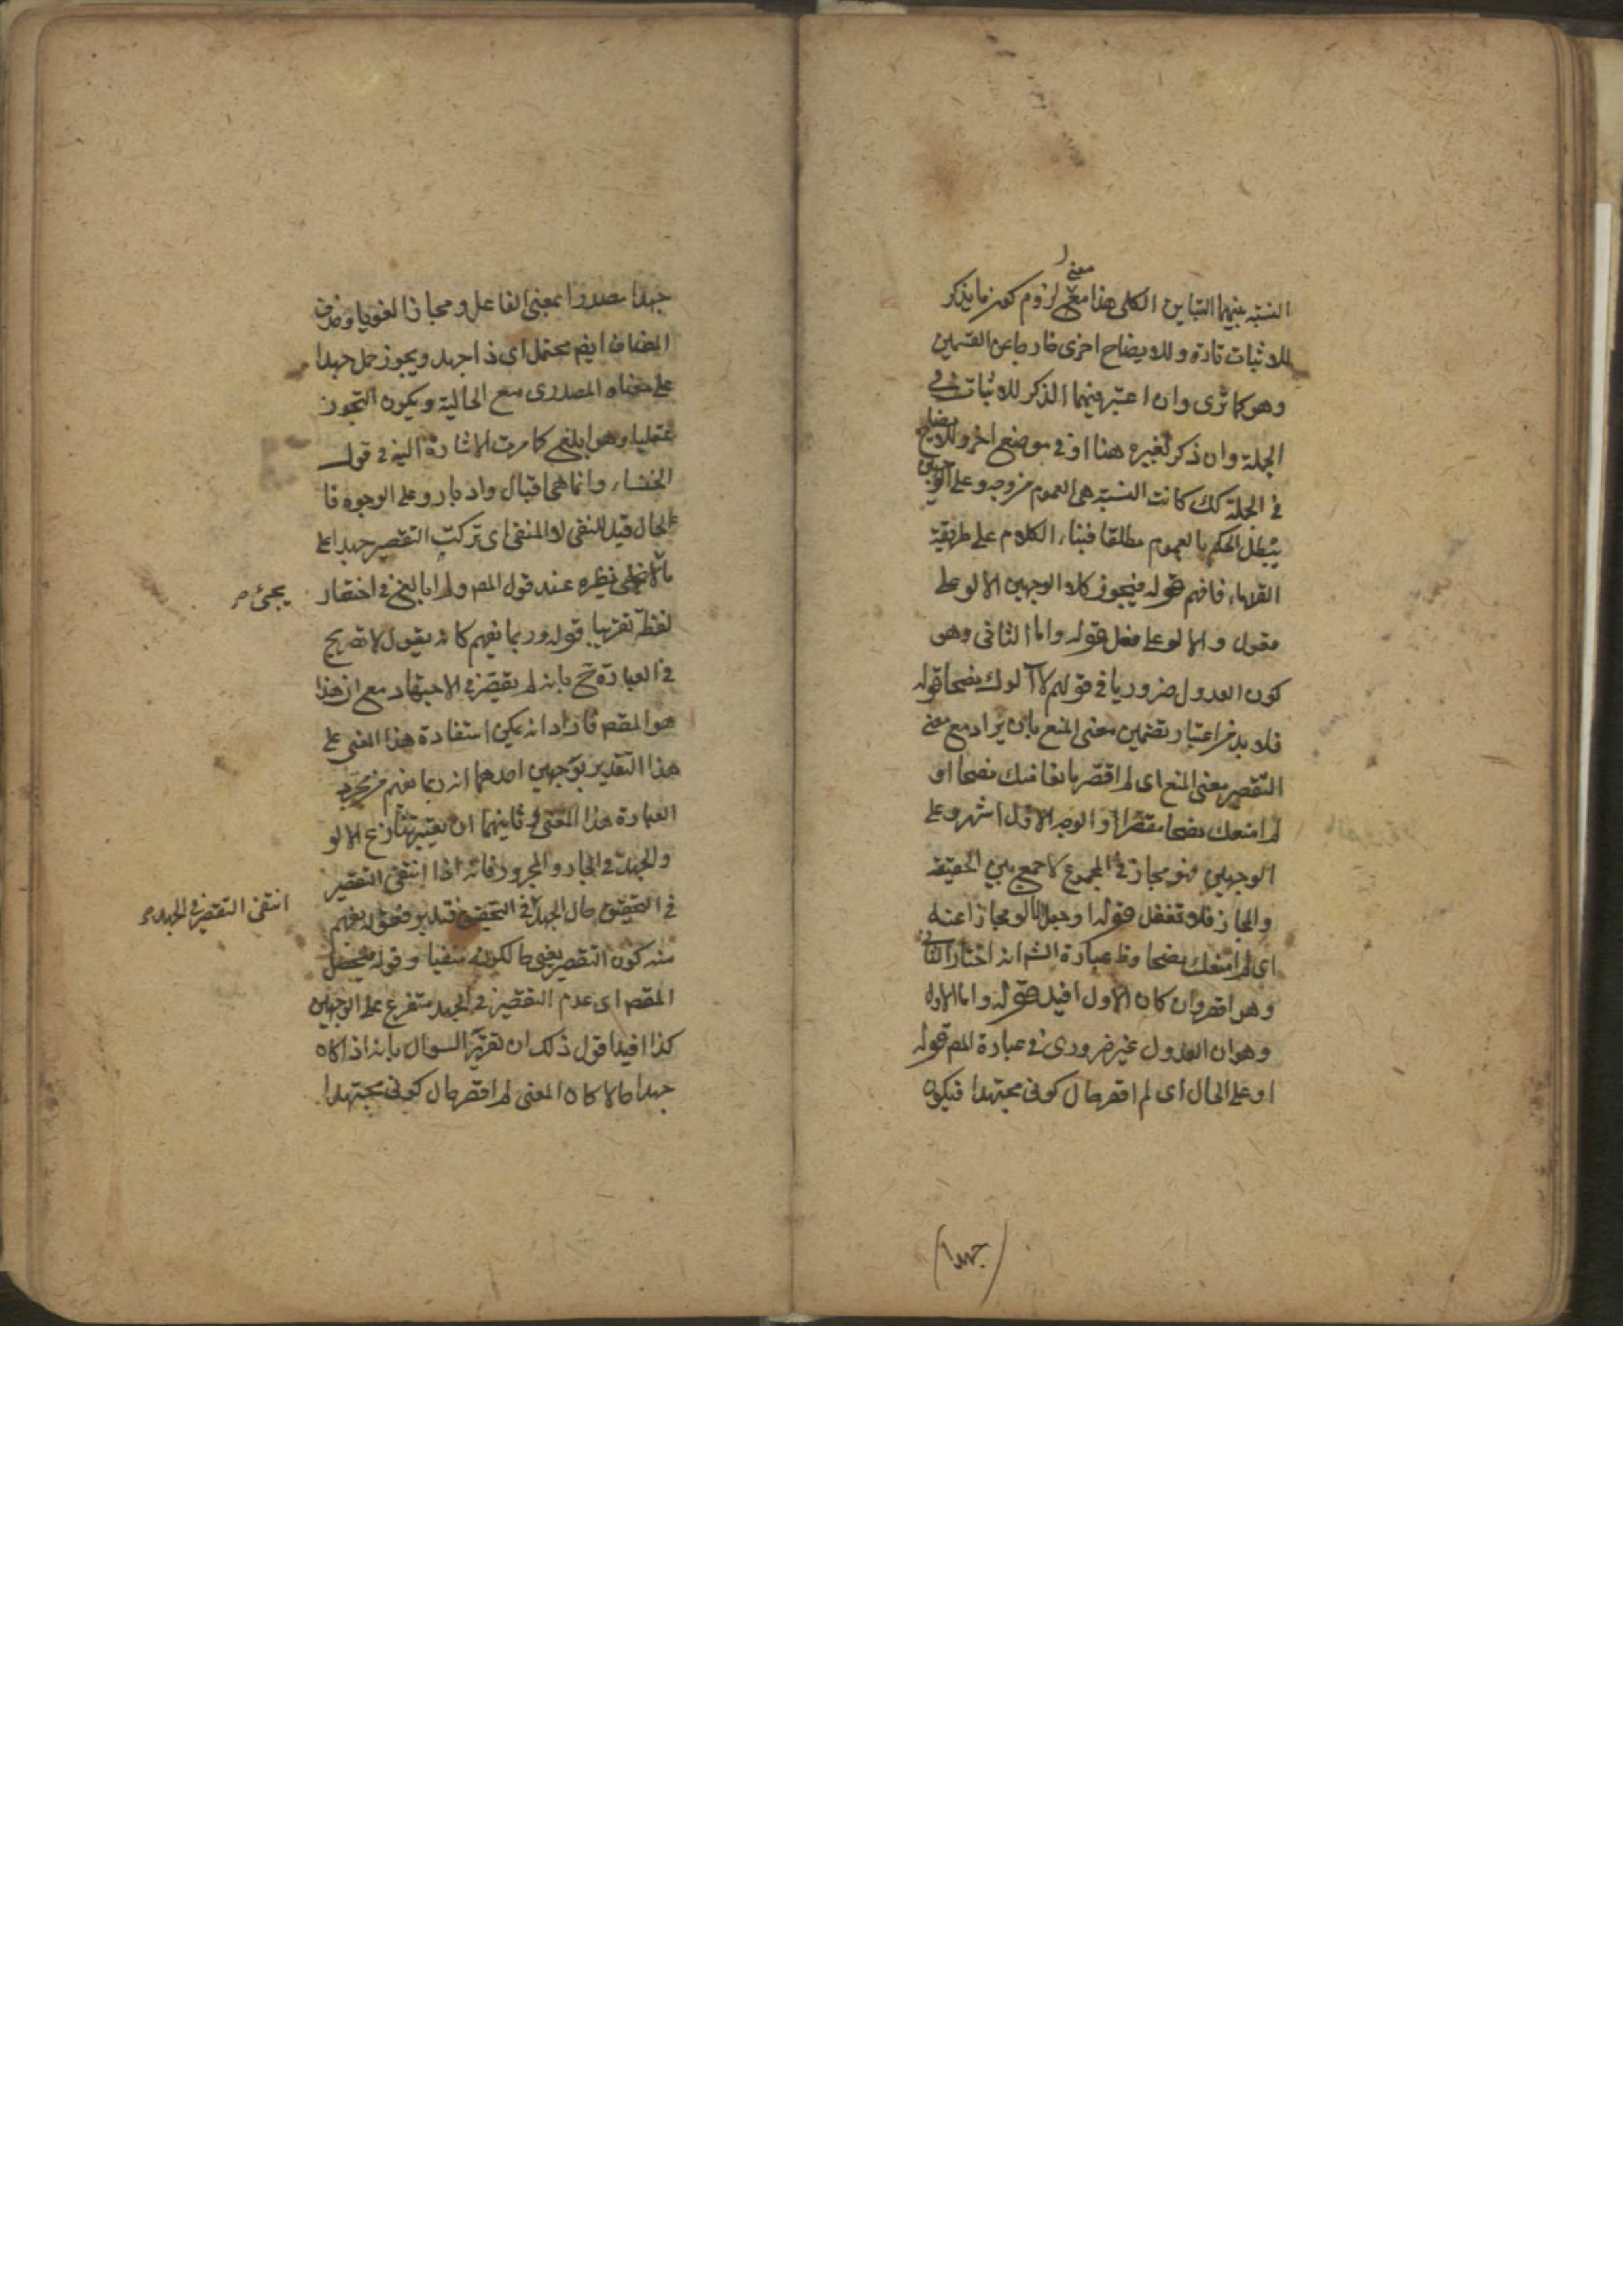 النسبة بينهما التباين الكلى هذا معنى لزوم كون ما يذكر
معنى
للاثبات تارة وللايضاح اخرى خارجا عن القسمين
وهو كما ترى وان اعتبر فيهما الذكر للاثبات فى
الجملة وان ذكر لغيره هنا او فى موضع اخر وللايضاح
فى الجملة كك كانت النسبة هى العموم من وجه وعلى الوجهين
يبطل الحكم بالعموم مطلقا فبناء الكلام على طريقة
القدماء فافهم قوله فيجوز كلا الوجهين الالو على
مفعول والالو على مفعل قوله واما الثانى وهو
كون العدول ضروريا فى قولهم لا آلوك نصحا قوله
فلا بد من اعتبار تضمين معنى المنع بان يراد مع معنى
التقصير معنى المنع اى لم اقصر مانعا منك نصحا او
لم امنعك نصحا مقصرا والوجه الاول اشهر وعلى
الوجهين فهو مجاز فى المجموع لا جمع بين الحقيقة
والمجاز فلا تغفل قوله او جعل الالو مجازا عنه
اى لم امنعك نصحا وظ عبارة الشم انه اختار الثانى
وهو اقصر وان كان الاول افيد قوله واما الاول
وهو ان العدول غير ضرورى فى عبارة المص قوله
او على الحال اى لم اقصر حال كونى مجتهدا فيكون
(جهدا)
جهدا مصدرا بمعنى الفاعل ومجازا لغويا وحذف
المضاف ايضم محتمل اى ذا جهد ويجوز حمل جهدا
على معناه المصدرى مع الحالية ويكون التجوز
عقليا وهو ابلغ كما مرت الاشارة اليه فى قول
الخنساء وانما هى اقبال وادبار وعلى الوجوه فا
لحال قيد للنفى لا المنفى اى تركت التقصير جهدا على
نظيره عند قول المص ولم ابالغ فى اختصار
يجئ صح
لفظه تقريبا قوله وربما يفهم كانه يقول لا تصريح
فى العبارة ح بانه لم يقصر فى الاجتهاد مع ان هذا
هو المقصم فاراد انه يمكن استفادة هذا المعنى على
هذا التقدير بوجهين احدهما انه ربما يفهم من
العبارة هذا المعنى وثانيهما ان يعتبر تنازع الالو
والجهد فى الجار والمجرور فانه اذا انتفى التقصير
فى التحقيق حال الجهد فى التحقيق فقوله يفهم
انتفى التقصير فى الجهد صح
منه كون التقصير يعنى حالكونه منفيا وقوله فيحصل
المقصم اى عدم التقصير فى الجهد متفرع على الوجهين
كذا افيد اقول ذلك ان تقرير السوال بانه اذا كان
جهدا حالا كان المعنى لم اقصر حال كونى مجتهدا